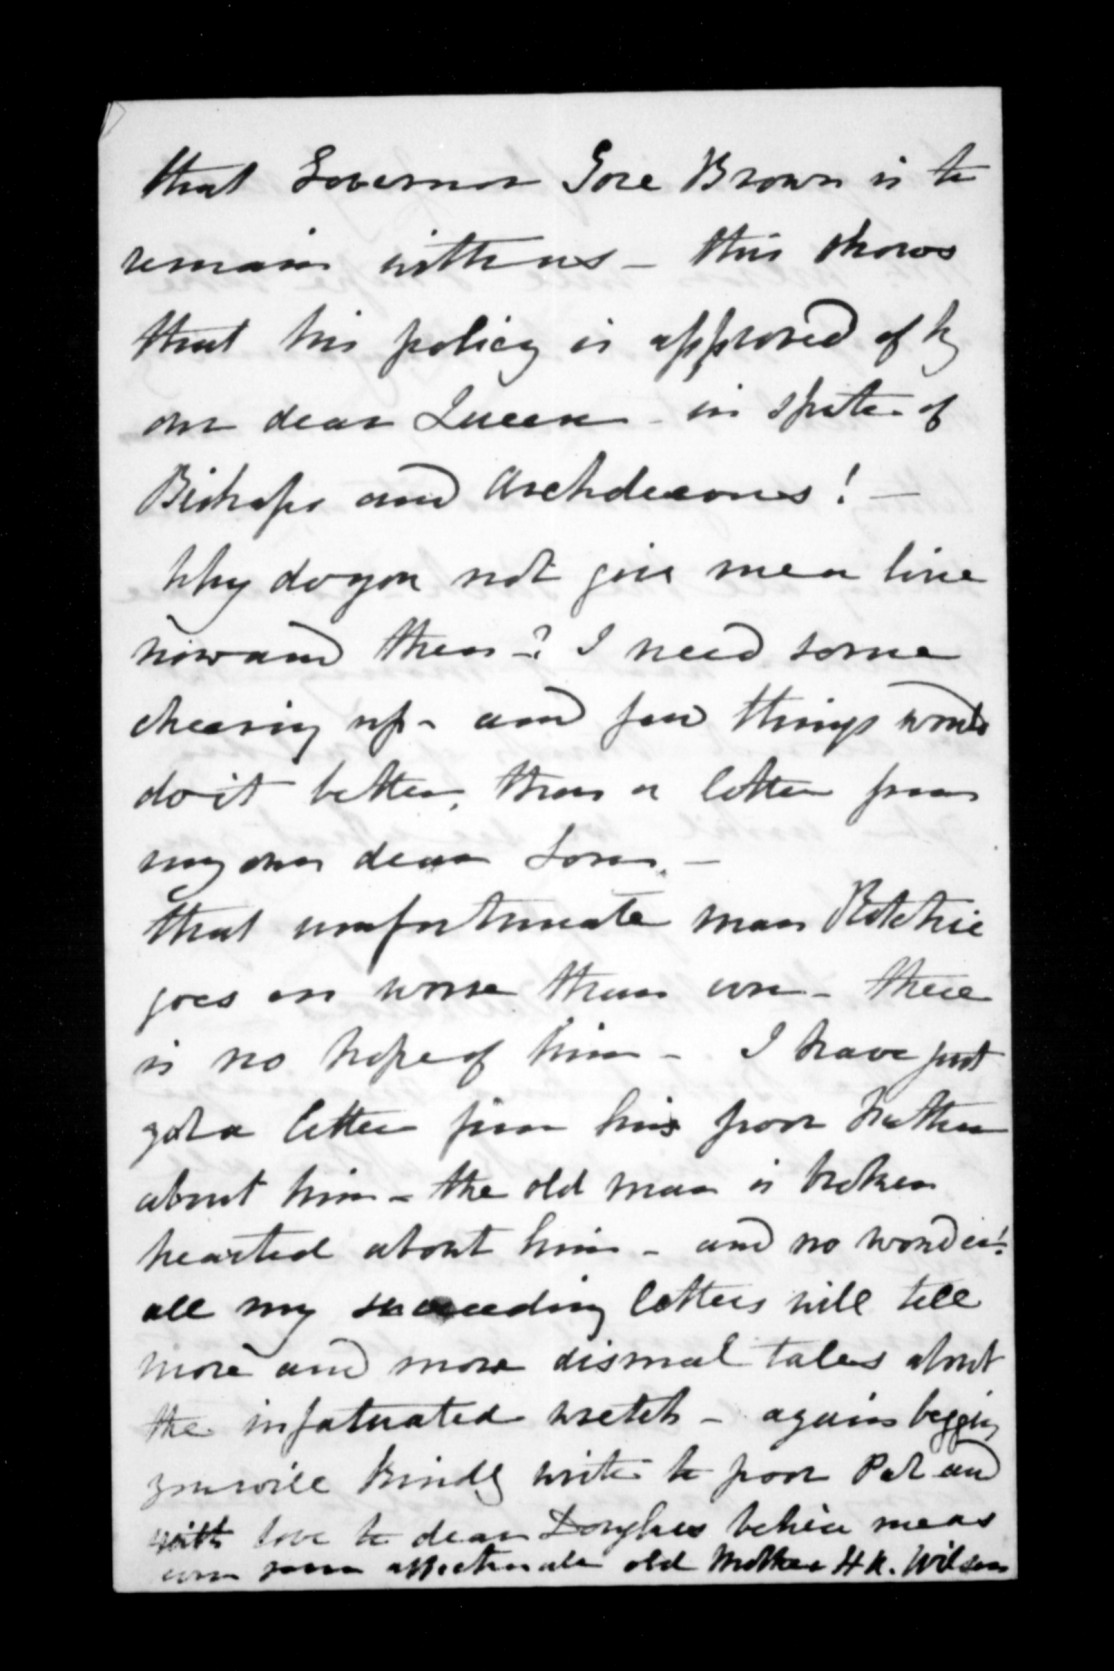 that Governor Gore Brown is to
remain with us - this shows
that his policy is approved of by
our dear Queen - in spite of
Bishops and Archdeacons! -
Why do you not give me a line
now and then -? I need some
cheering up - and few things would
do it better, than a letter from
my own dear Son. -
that unfortunate man Ritchie
goes on worse than ever - there
is no hope of him - I have just
got a letter from his poor Father
about him - the old man is broken
hearted about him - and no wonder!
all my succeeding letters will tell
more and more dismal tales about
the infatuated wretch - again begging
you will kindly write to poor Pat and
with love to dear Douglas believe me as
ever your affectionate old Mother H K. Wilson